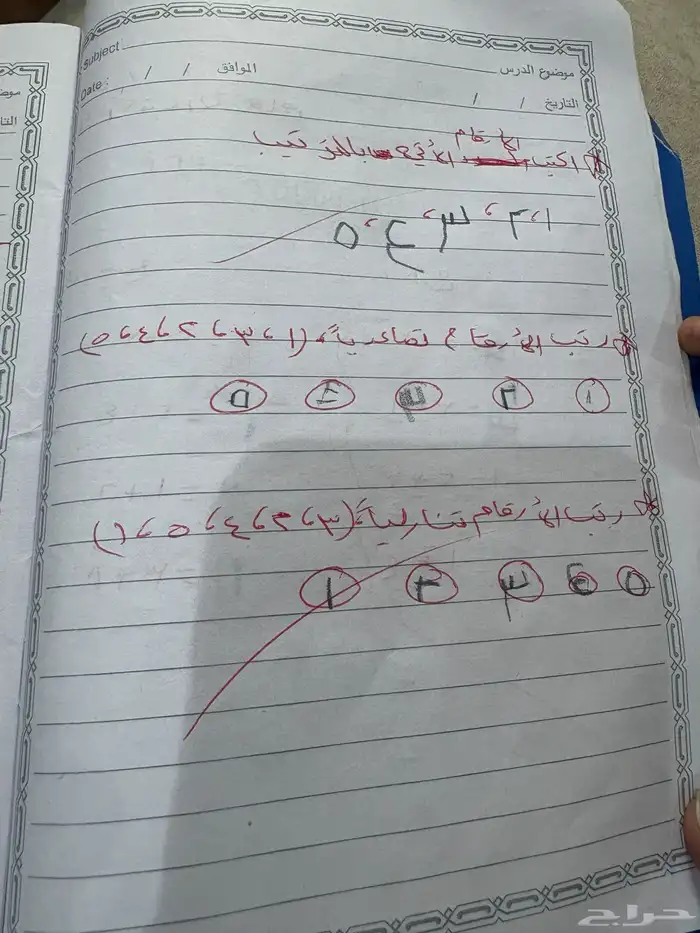 Subject : موضوع الدرس
Date : / / الموافق / / التاريخ
اكتب الأرقام الأتية بالترتيب
١، ٢، ٣، ٤، ٥
رتب الأرقام تصاعدياً، (١، ٣، ٢، ٤، ٥)
١ ٢ ٣ ٤ ٥
رتب الأرقام تنازلياً، (٣، ٢، ٤، ٥، ١)
٥ ٤ ٣ ٢ ١
حراج